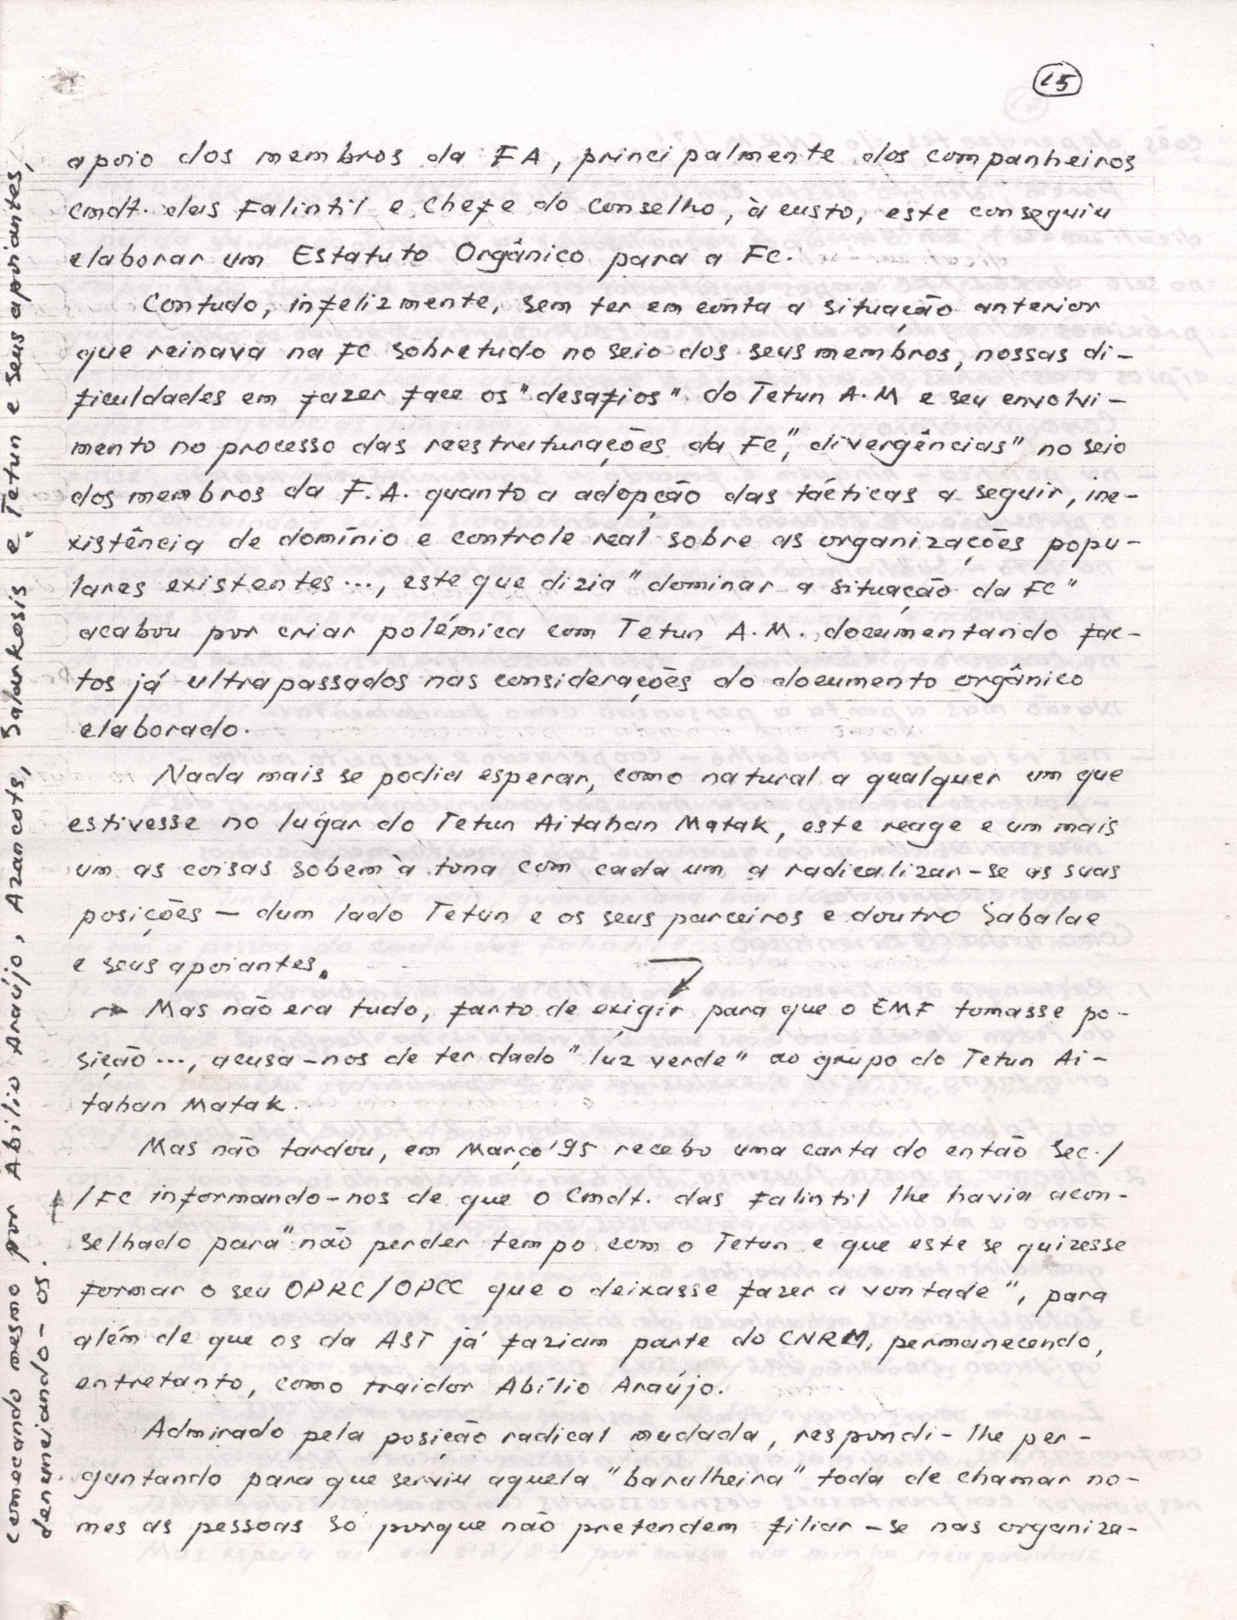 15
apoio dos membros da FA, principalmente dos companheiros
Cmdt. das Falintil e Chefe do Conselho, à custo, este conseguiu
elaborar um Estatuto Orgânico para a FC.
Contudo, infelizmente, sem ter em conta a situação anterior
que reinava na FC sobretudo no seio dos seus membros, nossas di-
ficuldades em fazer face os "desafios" do Tetun A.M e seu envolvi-
mento no processo das reestruturações da FC, "divergências" no seio
dos membros da F.A. quanto a adopção das tácticas a seguir, ine-
xistência de domínio e controle real sobre as organizações popu-
lares existentes..., este que dizia "dominar a situação da FC"
acabou por criar polémica com Tetun A.M. documentando fac-
tos já ultrapassados nas considerações do documento orgânico
elaborado.
Nada mais se podia esperar, como natural a qualquer um que
estivesse no lugar do Tetun Aitahan Matak, este reage e um mais
um as coisas sobem à tona com cada um a radicalizar-se as suas
posições — dum lado Tetun e os seus parceiros e doutro Sabalae
e seus apoiantes.
Mas não era tudo, farto de exigir para que o EMF tomasse po-
sição..., acusa-nos de ter dado "luz verde" ao grupo do Tetun Ai-
tahan Matak.
Mas não tardou, em Março '95 recebo uma carta do então Sec./
/FC informando-nos de que o Cmdt. das Falintil lhe havia acon-
selhado para "não perder tempo com o Tetun e que este se quizesse
formar o seu OPRC/OPCC que o deixasse fazer a vontade", para
além de que os da AST já faziam parte do CNRM, permanecendo,
entretanto, como traidor Abílio Araújo.
Admirado pela posição radical mudada, respondi-lhe per-
guntando para que serviu aquela "baralheira" toda de chamar no-
mes as pessoas só porque não pretendem filiar-se nas organiza-
começando mesmo por Abílio Araújo, Azancots, Salurkosis e, Tetun e seus apoiantes,
denunciando-os.